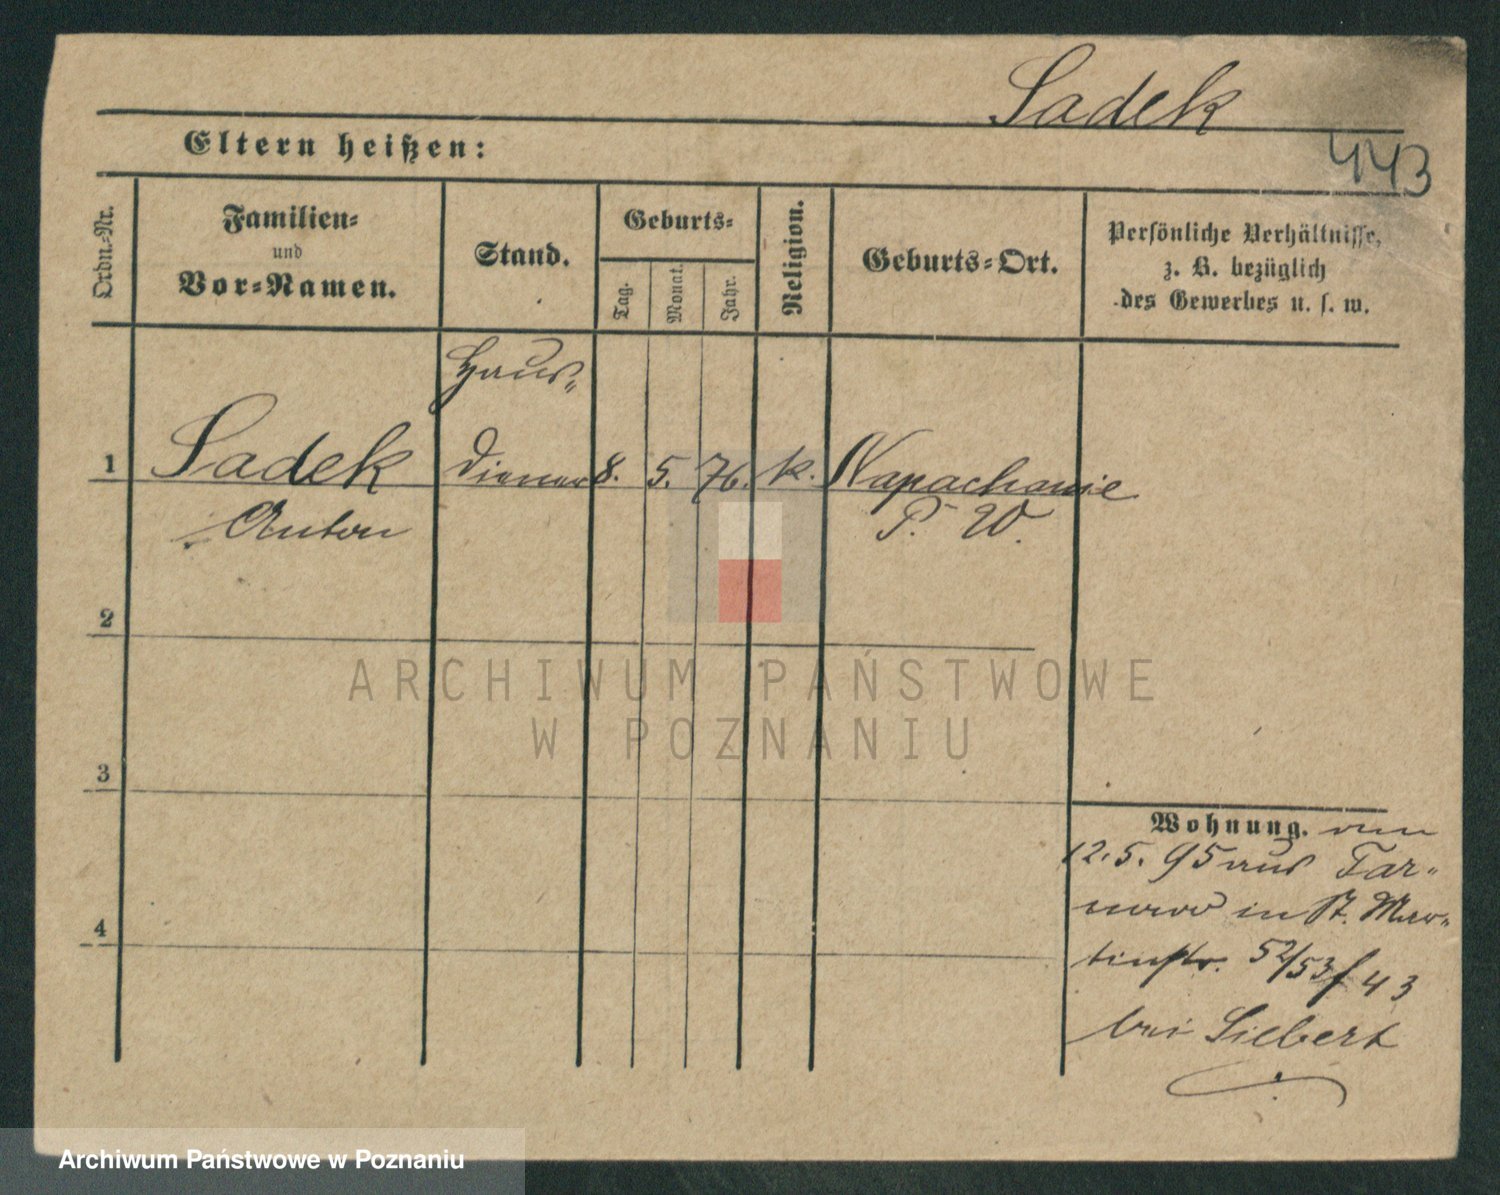 Sadek
443
Eltern heißen:
Ordn.-Nr.
Familien-
und
Vor-Namen.
Stand.
Geburts-
Tag.
Monat.
Jahr.
Religion.
Geburts-Ort.
Persönliche Verhältnisse,
z. B. bezüglich
des Gewerbes u. s. w.
Haus-
1 Sadek diener 8. 5. 76. k. Napachanie
Anton P. W.
2
3
4
Wohnung. am
12. 5. 95 aus Tar-
nowo in St. Mar-
tinstr. 52/53 f 43
bei Siebert
ARCHIWUM PAŃSTWOWE
W POZNANIU
Archiwum Państwowe w Poznaniu